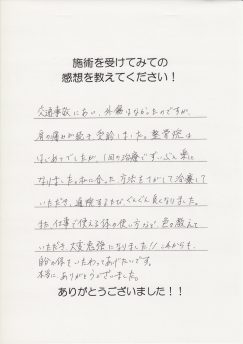 施術を受けてみての
感想を教えてください！
交通事故にあい、外傷はなかったのですが、
肩の痛みが続き、受診しました。整骨院は
はじめてでしたが、1回の治療でずいぶん楽に
なりました。私に合った方法をさがして治療して
いただき、通院するたびぐんぐん良くなりました。
また、仕事で使える体の使い方など、色々教えて
いただき、大変勉強になりました!! これからも、
自分の体をいたわってあげたいです。
本当にありがとうございました。
ありがとうございました！！